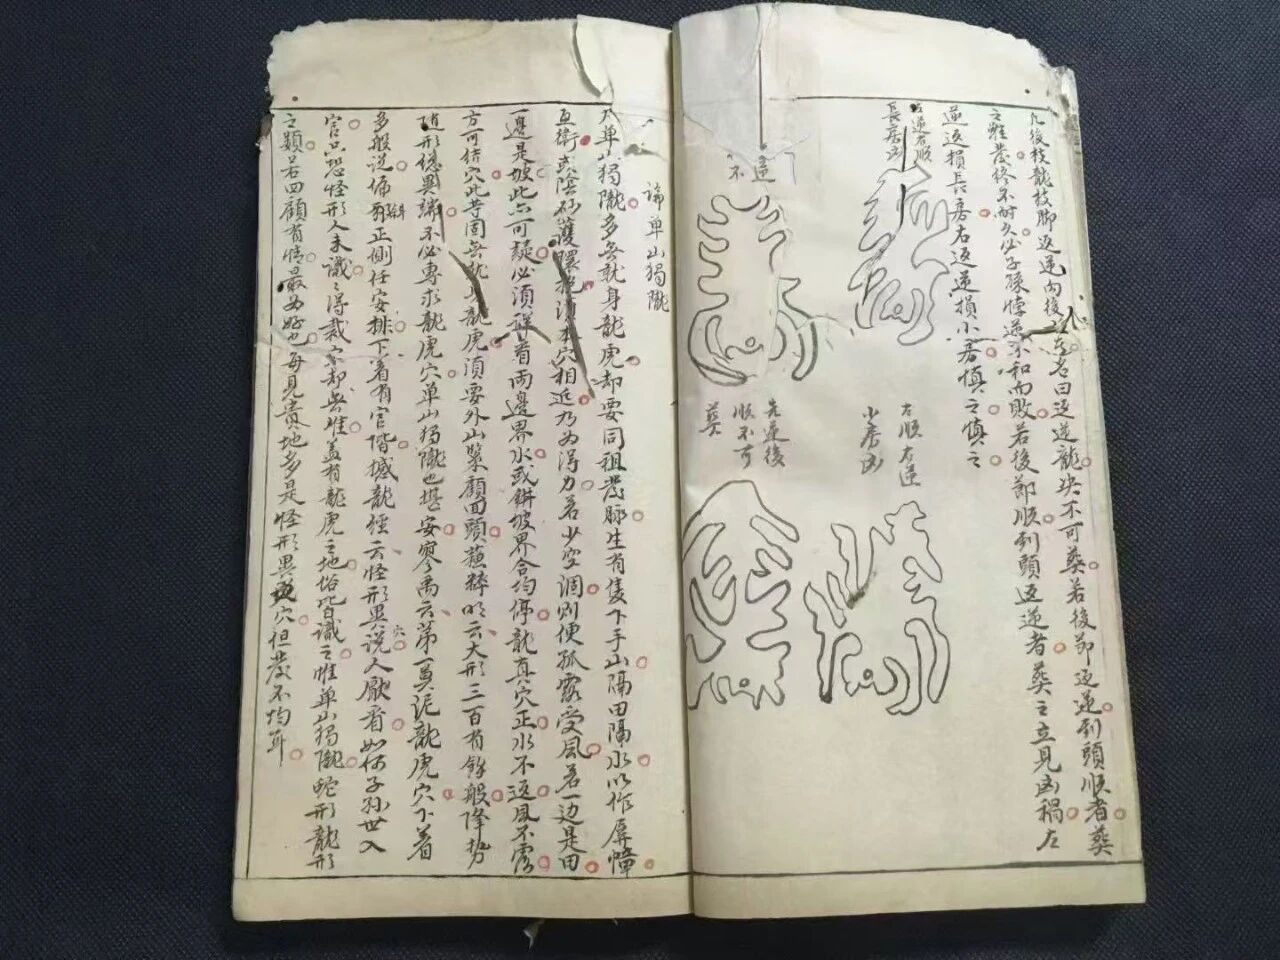 凡後枝龍枝脚返逆向後者名曰返逆龍决不可葬若後節返逆到頭順者葬
之雖發終不耐久必子孫悖逆不和而敗若後節順到頭返逆者葬之立見凶禍左
逆返損長房右返逆損小房慎之慎之
左逆右順
長房凶
左順右逆
小房凶
逆
不
先逆後
順不可
葬
論单山獨隴
凡单山獨隴多無就身龍虎却要同祖發脉生有隻下手山隔田隔水以作屏幛
互衛或陰砂護環抱須本穴相近乃为得力若少空涸則便孤露受風若一边是田
一邊是坡此亦可疑必須詳看兩邊界水或斜坡界合均停龍真穴正水不返風不露
方可侍穴此等固無就身龍虎須要外山緊顧面頭蕉粹明云大形三百有餘般降势
随形穏異端不必專求龍虎穴单山獨隴也堪安廖禹云第一莫泥龍虎穴下着
多般说俑斜正側任安排下着有官階撼龍經云怪形異穴说人厭看如何子孙世入
官只恐怪形人未識識得裁穴却無难盖有龍虎之地俗皆識之惟单山獨隴蛇形龍形
之類若四顧有情最为好也每見贵地多是怪形異穴但發不均耳